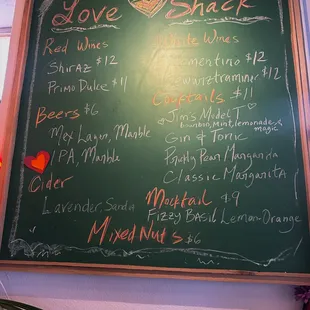 Love Shack
Red Wines
Shiraz $12
Primo Dulce $11
Beers $6
Mex Lagun, Marble
IPA, Marble
Cider
Lavender, Sandia
White Wines
Vermentino $12
Gewürztramine $12
Cocktails $11
Jims Model T
bourbon, Mint, lemonade, &
magic
Gin & Tonic
Prickly Pear Margarita
Classic Margarita
Mocktail $9
Fizzy Basil Lemon-Orange
Mixed Nuts $6